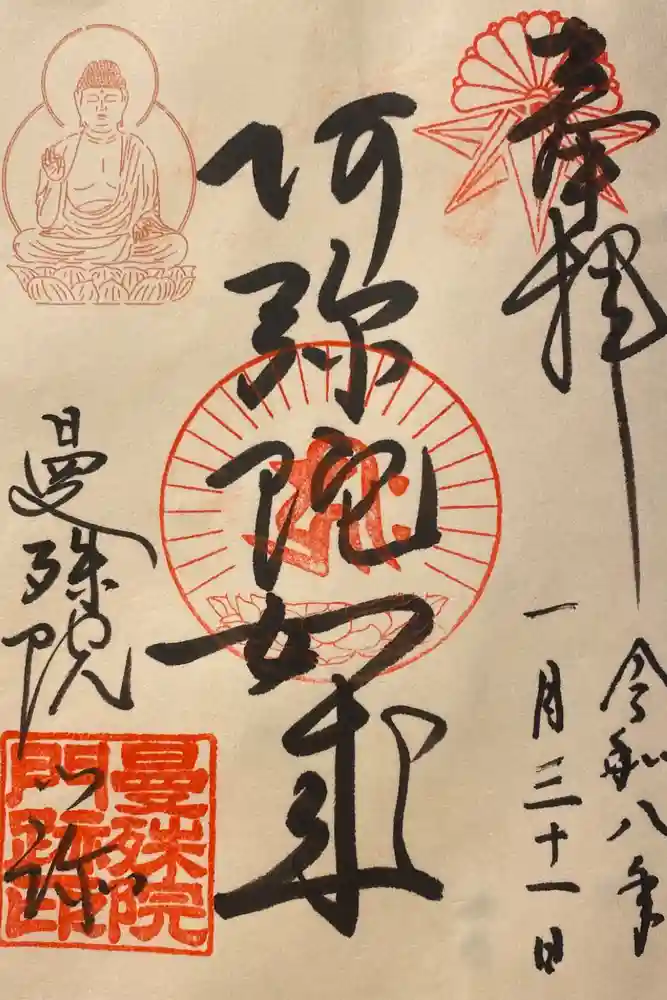 奉拝
令和八年
一月三十一日
阿弥陀如来
キリーク
曼殊院
門跡
曼殊院
門跡印